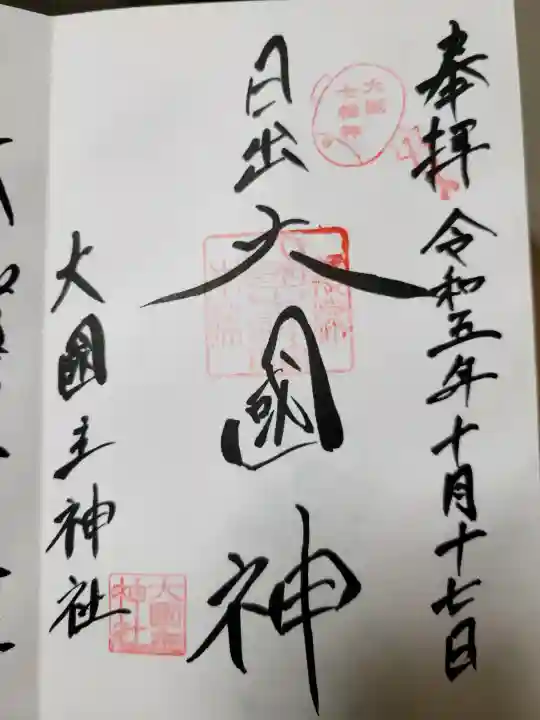 奉拝
令和五年十月十七日
大國
七福神
日出大國神
大國主神社
大國主
神社